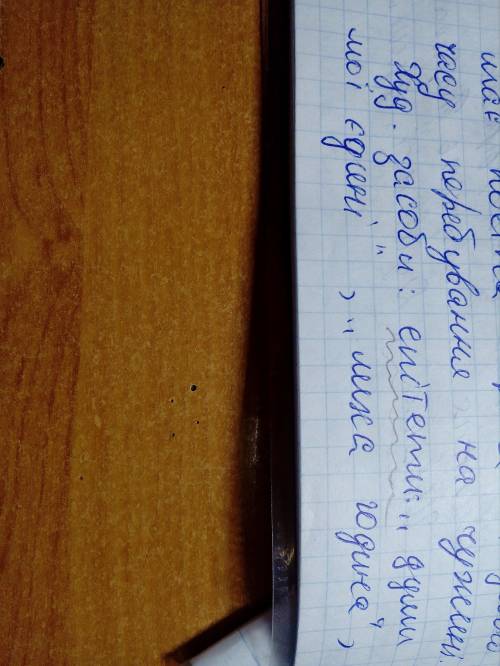 має поета
часу перебування на чужині.
Худ. засоби: епітети: „ думи
мої єдині ", „ лиха година",